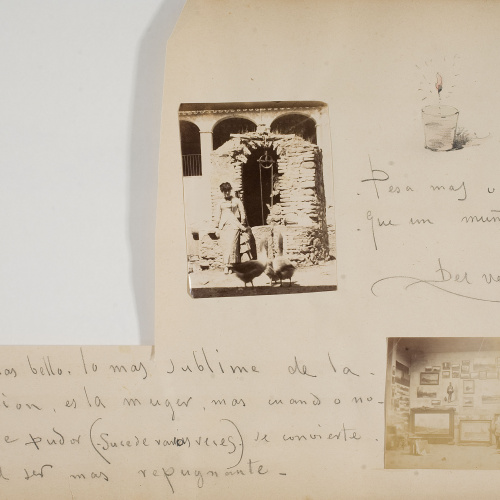 Pesa mas u
que un muñ
Del
as bello, lo mas sublime de la
ion, es la muger, mas cuando o no-
e pudor (Sucede raras veces) se convierte
l ser mas repugnante.